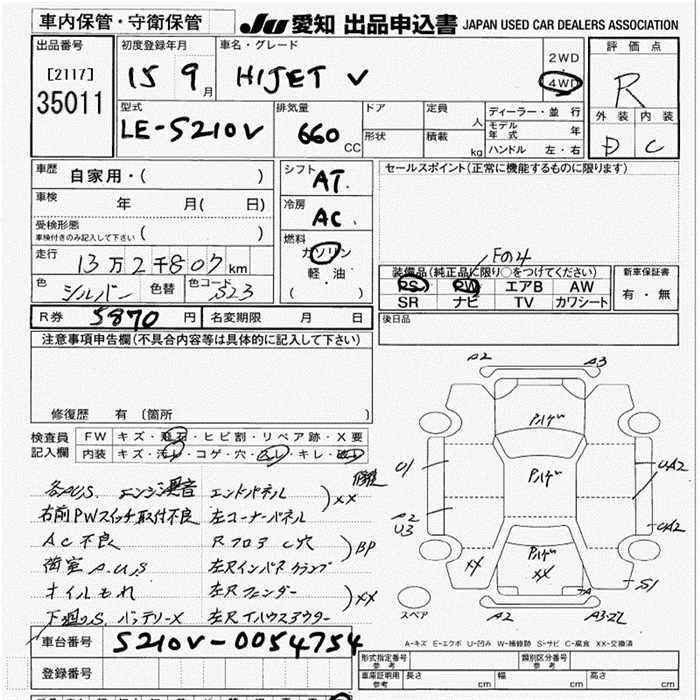 車内保管・守衛保管 JU 愛知 出品申込書 JAPAN USED CAR DEALERS ASSOCIATION
出品番号 初度登録年月 車名・グレード 2WD 評価点
[2117] 15 9月 HIJET V 4WD R
35011
型式 排気量 ドア 定員 人 ディーラー・並行 外装 内装
LE-S210V 660 CC 形状 積載 kg モデル年式 年 D C
ハンドル 左・右
車歴 自家用・( ) シフト AT セールスポイント(正常に機能するものに限ります)
車検 年 月( 日) 冷房 AC
受検形態
車検付きのみ記入して下さい ( ) 燃料 ガソリン
走行 13万2千807km 軽油 装備品(純正品に限り○をつけてください) 新車保証書
色 シルバー 色替 色コード S23 ( ) PS PW エアB AW 有・無
SR ナビ TV カワシート
R券 5870円 名変期限 月 日 後日品
注意事項申告欄(不具合内容等は具体的に記入して下さい)
修復歴 有 〔箇所 〕
検査員 FW キズ・飛石・ヒビ割・リペア跡・X要
記入欄 内装 キズ・汚れ・コゲ・穴・・キレ・
各A.U.S. エンジン異音 エンドパネル )XX 修復
右前PWスイッチ取付不良 左コーナーパネル
AC不良 Rフロア C穴 )BP
荷室 A.U.S 左Rインパネ
オイルもれ 左Rフェンダー )XX
下廻りS. バッテリーX 左Rタイハウスアウター
車台番号 S210V-0054754
登録番号
A2 A3
U1 UA2
A2
U3 UA2
XX XX A S1
A2 A3
スペア
A-キズ E-エクボ U-凹み W-補修跡 S-サビ C-腐食 XX-交換済
形式指定番号 参考 類別区分番号 参考
車庫証明用 参考 長さ cm 幅 cm 高さ cm